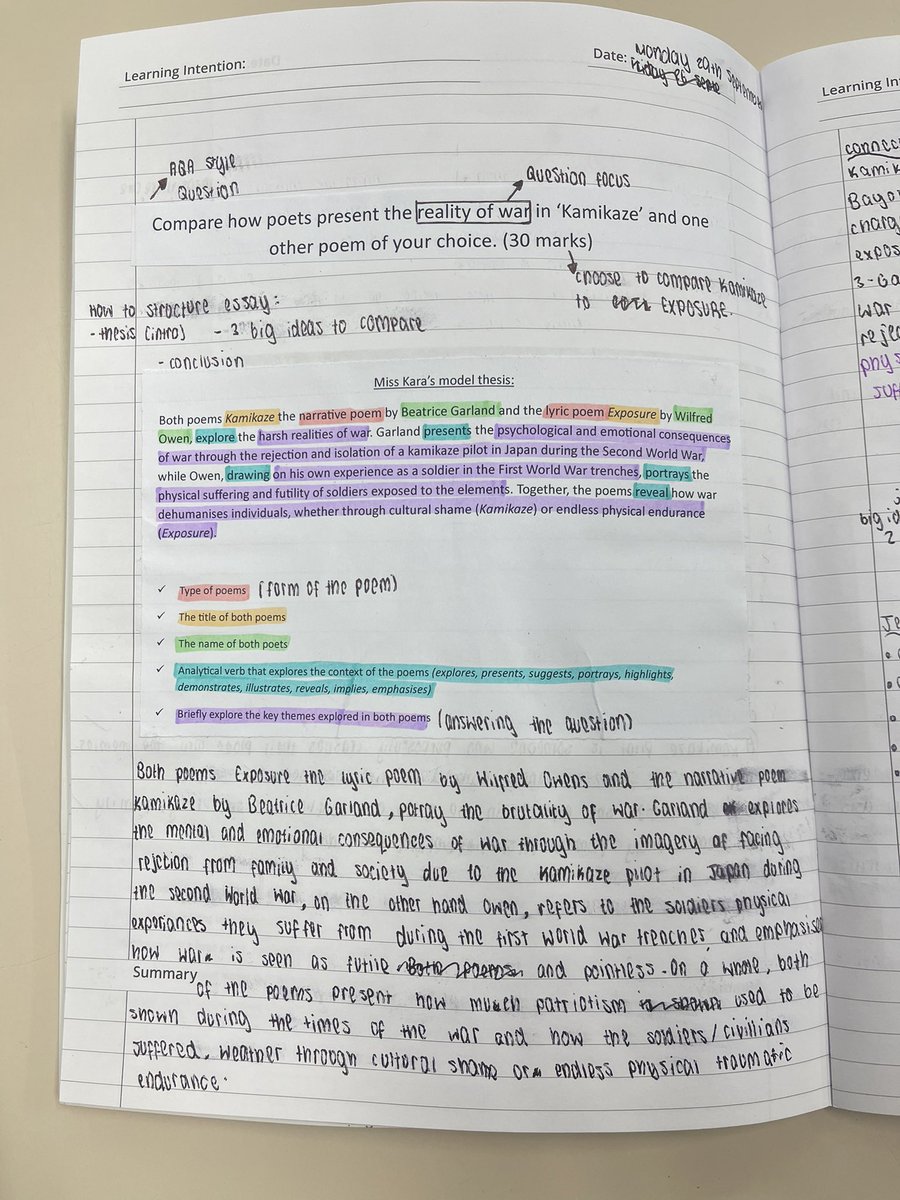 Learning Intention:
Date: Monday 29th September
Friday 26 Sept
Learning Int
AQA style
Question
Question focus
Compare how poets present the reality of war in ‘Kamikaze’ and one
other poem of your choice. (30 marks)
choose to compare Kamikaze
to EXPOSURE.
How to structure essay:
- thesis (intro) - 3 big ideas to compare
- conclusion
Miss Kara’s model thesis:
Both poems Kamikaze the narrative poem by Beatrice Garland and the lyric poem Exposure by Wilfred
Owen, explore the harsh realities of war. Garland presents the psychological and emotional consequences
of war through the rejection and isolation of a kamikaze pilot in Japan during the Second World War,
while Owen, drawing on his own experience as a soldier in the First World War trenches, portrays the
physical suffering and futility of soldiers exposed to the elements. Together, the poems reveal how war
dehumanises individuals, whether through cultural shame (Kamikaze) or endless physical endurance
(Exposure).
✓ Type of poems (form of the poem)
✓ The title of both poems
✓ The name of both poets
✓ Analytical verb that explores the context of the poems (explores, presents, suggests, portrays, highlights,
demonstrates, illustrates, reveals, implies, emphasises)
✓ Briefly explore the key themes explored in both poems (answering the question)
Both poems Exposure the lyric poem by Wilfred Owens and the narrative poem
Kamikaze by Beatrice Garland, potray the brutality of war. Garland explores
the mental and emotional consequences of war through the imagery of facing
rejction from family and society due to the Kamikaze pilot in Japan during
the second World War, on the other hand Owen, refers to the soldiers physical
experiances they suffer from during the first world war trenches, and emphasise
how war is seen as futile Both poems and pointless. On a whole, both
Summary
of the poems present how much patriotism is shown used to be
shown during the times of the war and how the soldiers/civillians
suffered, weather through cultural shame or endless physical traumatic
endurance.
connec
Kamik
Bayo
charg
expos
3-Ga
war
rejec
phys
suff
big id
2